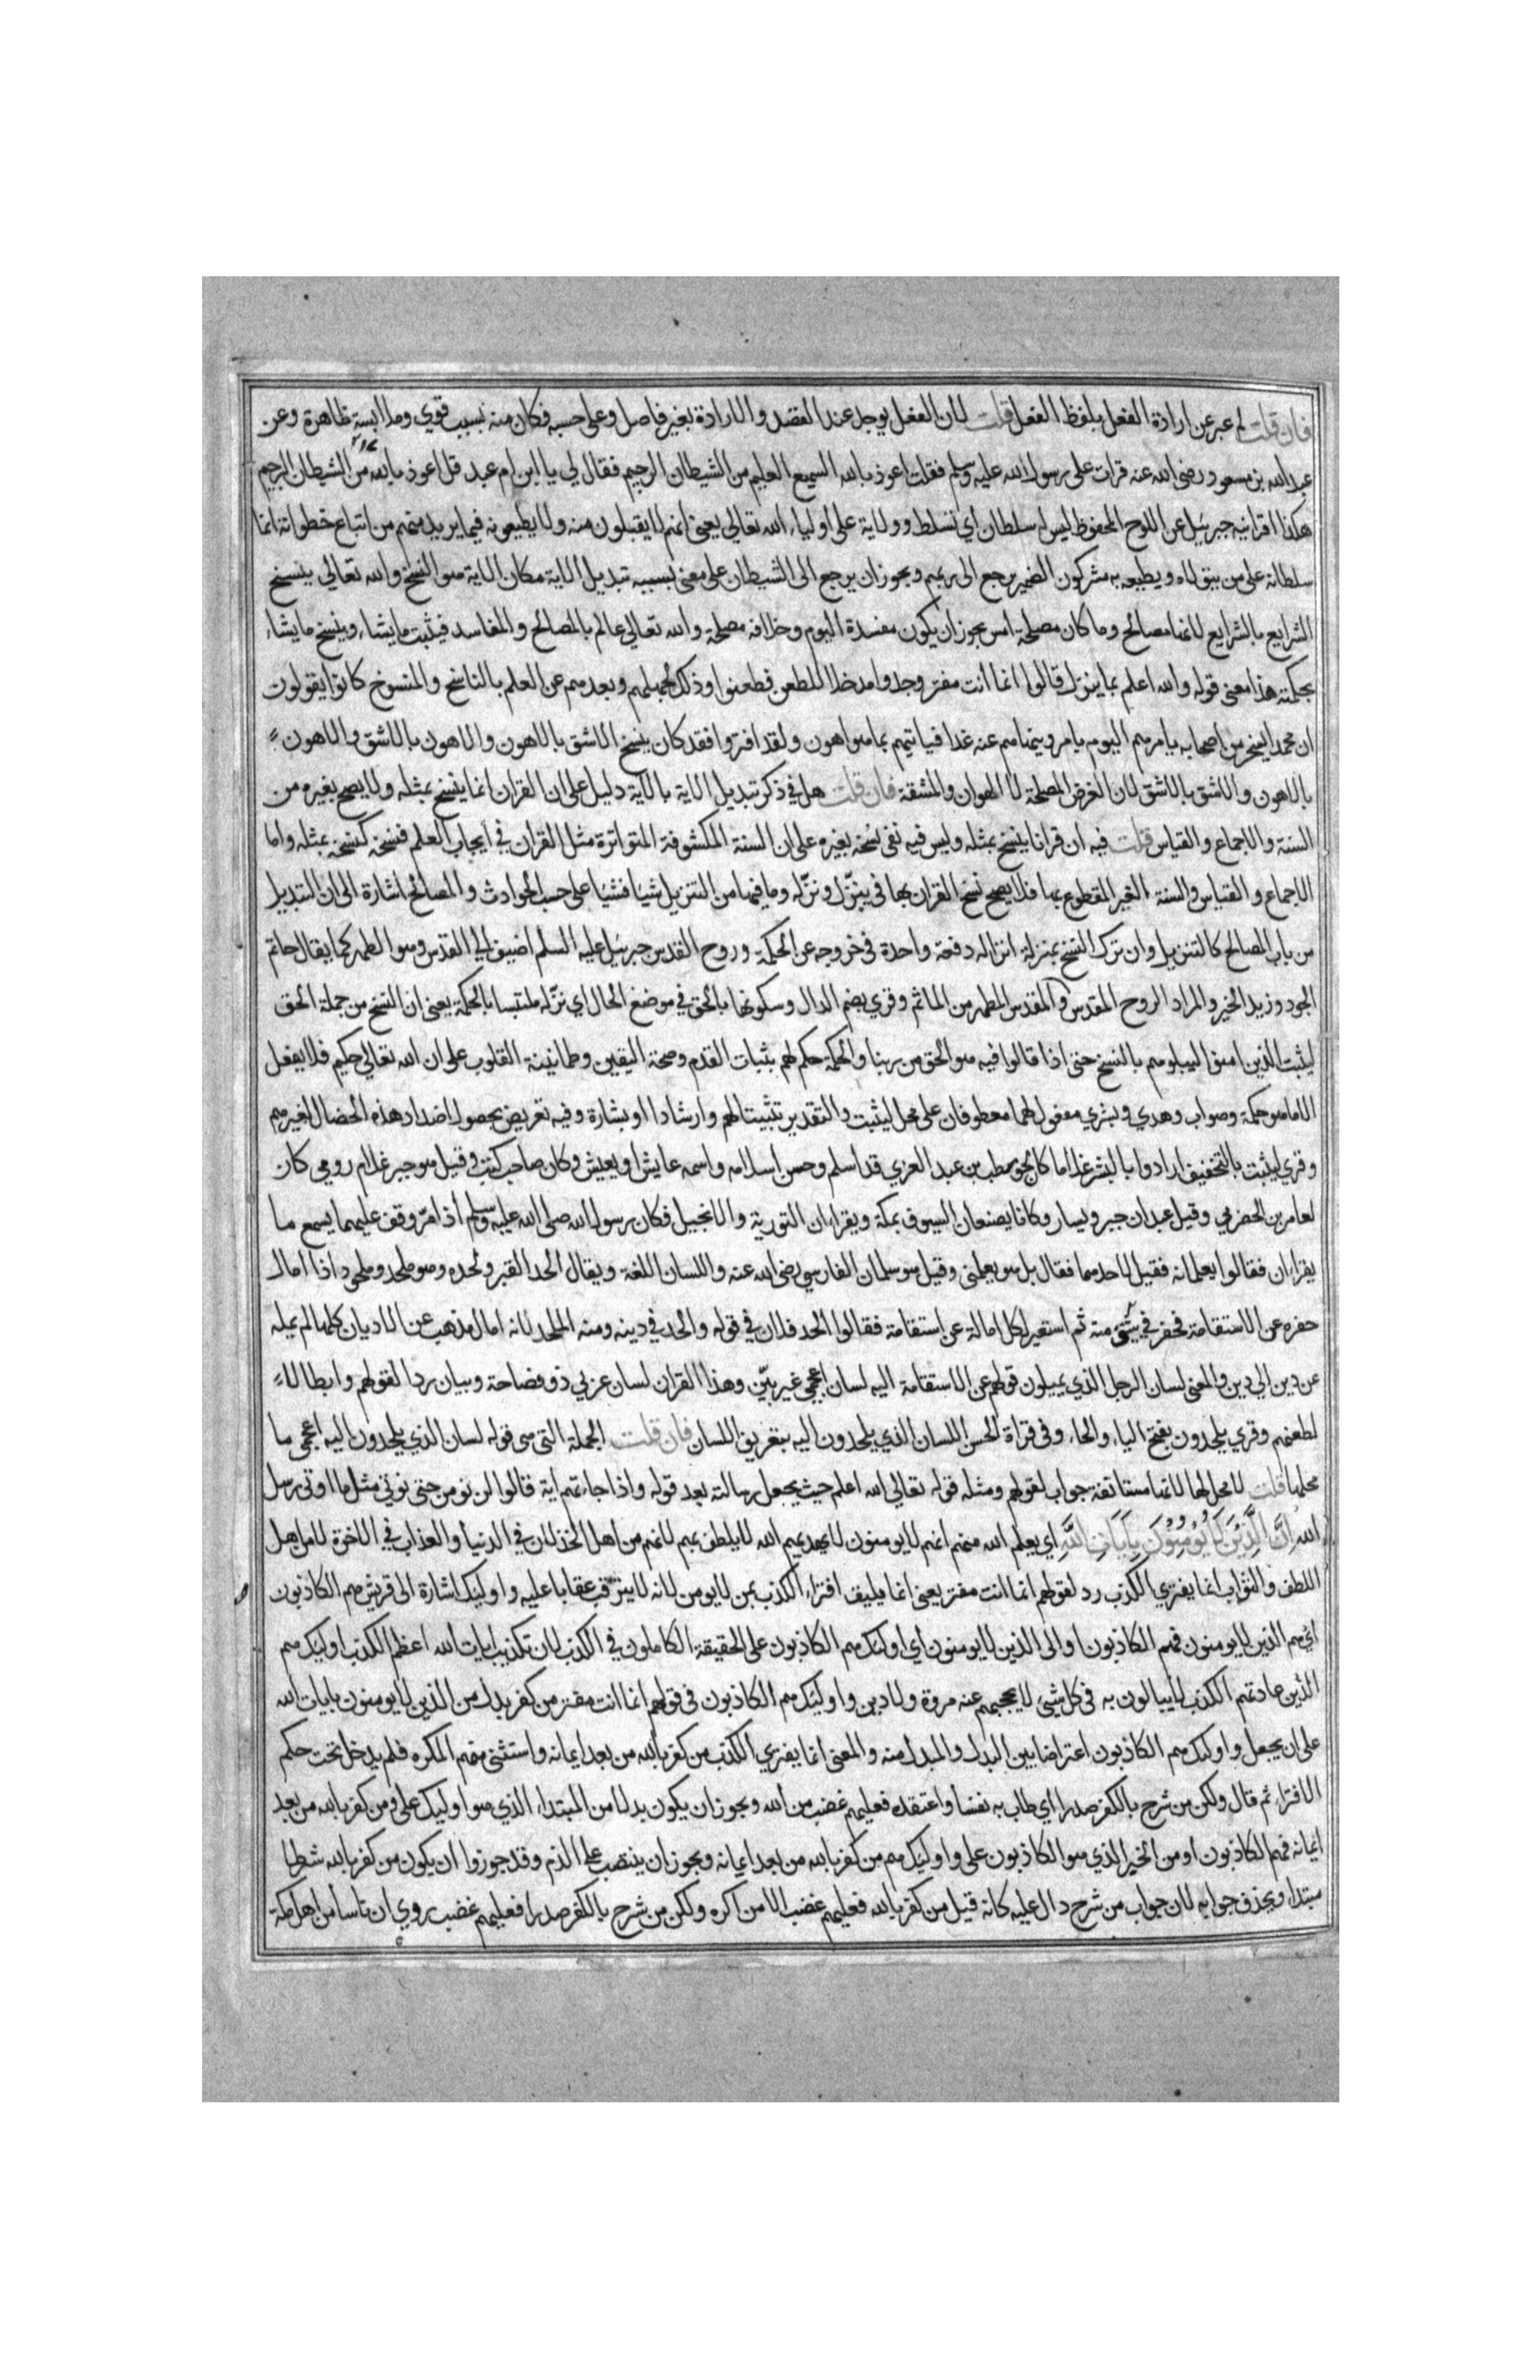 فان قلت لم عبر عن ارادة الفعل بلفظ الفعل قلت لان الفعل يوجد عند القصد والارادة بغير فاصل وعلى حسبه فكان منه بسبب قوي وملابسة ظاهرة وعن
عبد الله بن مسعود رضى الله عنه قرات على رسول الله عليه وسلم فقلت اعوذ بالله السميع العليم من الشيطان الرجيم فقال لي يا ابن ام عبد قل اعوذ بالله من الشيطان الرجيم
هكذا اقرانيه جبرئيل عن اللوح المحفوظ ليس له سلطان اي تسلط وولاية على اولياء الله تعالي يعنى انهم لا يقبلون منه ولا يطيعونه فيما يريد منهم من اتباع خطواته انما
سلطانه على من يتولاه ويطيعه به مشركون الضمير يرجع الى ربهم ويجوز ان يرجع الى الشيطان على معنى بسببه تبديل الاية مكان الاية هو النسخ والله تعالي ينسخ
الشرايع بالشرايع لانها مصالح وما كان مصلحة امس يجوز ان يكون مفسدة اليوم وخلافه مصلحة والله تعالي عالم بالمصالح والمفاسد فيثبت ما يشاء وينسخ ما يشاء
بحكمته هذا معنى قوله والله اعلم بما ينزل قالوا انما أنت مفتر وجدوا مدخلا للطعن فطعنوا وذلك لجهلهم وبعدهم عن العلم بالناسخ والمنسوخ كانوا يقولون
ان محمدا يسخر من اصحابه يامرهم اليوم بامر وينهاهم عنه غدا فياتيهم بما هو اهون ولقد افتروا فقد كان ينسخ الاشق بالاهون والاهون بالاشق والاهون
بالاهون والاشق بالاشق لان الغرض المصلحة لا الهوان والمشقة فان قلت هل في ذكر تبديل الاية بالاية دليل على ان القران انما ينسخ بمثله ولا يصح بغيره من
السنة والاجماع والقياس قلت فيه ان قرانا ينسخ بمثله وليس فيه نفى نسخه بغيره على ان السنة المكشوفة المتواترة مثل القران في ايجاب العلم فنسخه كنسخه بمثله واما
الاجماع والقياس والسنة الغير المقطوع بها فلا يصح نسخ القران بها في ينزل ونزله وما فيهما من التنزيل شيا فشيا على حسب الحوادث والمصالح اشارة الى ان التبديل
من باب المصالح كالتنزيل وان ترك النسخ بمنزلة انزاله دفعة واحدة في خروجه عن الحكمة وروح القدس جبرئيل عليه السلم اضيف الي القدس وهو الطهر كما يقال حاتم
الجود وزيد الخير والمراد الروح المقدس والمقدس المطهر من الماثم وقري بضم الدال وسكونها بالحق في موضع الحال اي نزله ملتبسا بالحكمة يعنى ان النسخ من جملة الحق
ليثبت الذين امنوا ليبلوهم بالنسخ حتى اذا قالوا فيه هو الحق من ربنا والحكمة حكم لهم بثبات القدم وصحة اليقين وطمانينة القلوب على ان الله تعالي حكيم فلا يفعل
الا ما هو حكمة وصواب وهدي وبشري مفعول لهما معطوفان على محل ليثبت والتقدير تثبيتا لهم وارشادا وبشارة وفيه تعريض بحصول اضداد هذه الخصال لغيرهم
وقري ليثبت بالتخفيف ارادوا بالبشر غلاما كان لحويطب بن عبد العزي قد اسلم وحسن اسلامه واسمه عايش او يعيش وكان صاحب كتب وقيل هو جبر غلام رومي كان
لعامر بن الحضرمي وقيل عبدان جبر ويسار وكانا يصنعان السيوف بمكة ويقراءان التورية والانجيل فكان رسول الله صلى الله عليه وسلم أذا مرّ وقف عليهما يسمع ما
يقراءان فقالوا يعلمانه فقيل لاحدهما فقال بل هو يعلمني وقيل هو سلمان الفارسي رضى الله عنه واللسان اللغة ويقال الحد القبر ولحده وهو ملحد وملحود اذا امال
حفره عن الاستقامة فحفر في شق منه ثم استعير لكل امالة عن استقامة فقالوا الحد فلان في قوله والحد في دينه ومنه الملحد لانه امال مذهبه عن الاديان كلها لم يمله
عن دين الي دين والمعنى لسان الرجل الذي يميلون قولهم عن الاستقامة اليه لسان اعجمي غير بيّن وهذا القران لسان عربي ذو فصاحة وبيان ردا لقولهم وابطالا
لطعنهم وقري يلحدون بفتح الياء والحاء وفي قراة الحسن اللسان الذي يلحدون اليه بتعريف اللسان فان قلت الجملة التى هى قوله لسان الذي يلحدون اليه اعجمي ما
محلها قلت لا محل لها لانها مستانفة جواب لقولهم ومثله قوله تعالى الله اعلم حيث يجعل رسالته بعد قوله واذا جاءتهم اية قالوا لن نومن حتى نوتي مثل ما اوتي رسل
الله إِنَّ الَّذِيْنَ لَا يُؤْمِنُوْنَ بِآيَاتِ اللَّهِ اي يعلم الله منهم انهم لا يومنون لا يهديهم الله لا يلطف بهم لانهم من اهل الخذلان في الدنيا والعذاب في الاخرة لا من اهل
اللطف والثواب انما يفتري الكذب رد لقولهم انما انت مفتر يعنى انما يليق افتراء الكذب بمن لا يومن لانه لا يترقب عقابا عليه واوليك اشارة الى قريش هم الكاذبون
اي هم الذين لا يومنون فهم الكاذبون او الى الذين لا يومنون أي اوليك هم الكاذبون على الحقيقة الكاملون في الكذب لان تكذيب ايات الله اعظم الكذب اوليك هم
الذين عادتهم الكذب لا يبالون به في كل شيء لا يحجبهم عنه مروة ولا دين واوليك هم الكاذبون في قولهم انما انت مفتر من كفر بدل من الذين لا يومنون بايات الله
على ان يجعل واوليك هم الكاذبون اعتراضا بين البدل والمبدل منه والمعنى انما يفتري الكذب من كفر بالله من بعد ايمانه واستثنى منهم المكره فلم يدخل تحت حكم
الافتراء ثم قال ولكن من شرح بالكفر صدرا اي طاب به نفسا واعتقده فعليهم غضب من الله ويجوز ان يكون بدلا من المبتداء الذي هو اوليك على ومن كفر بالله من بعد
ايمانه هم الكاذبون او من الخبر الذي هو الكاذبون على واوليك هم من كفر بالله من بعد ايمانه ويجوز ان ينتصب على الذم وقد جوزوا ان يكون من كفر بالله شرطا
مبتدا ويحذف جوابه لان جواب من شرح دال عليه كانه قيل من كفر بالله فعليهم غضب الا من اكره ولكن من شرح بالكفر صدرا فعليهم غضب روي ان ناسا من اهل مكة